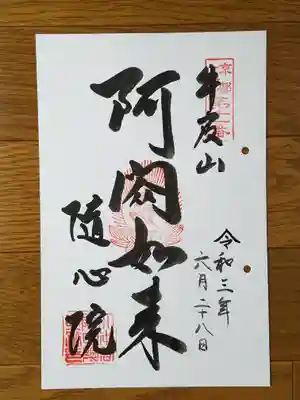 牛皮山
阿閦如来
随心院
令和三年
六月二十八日